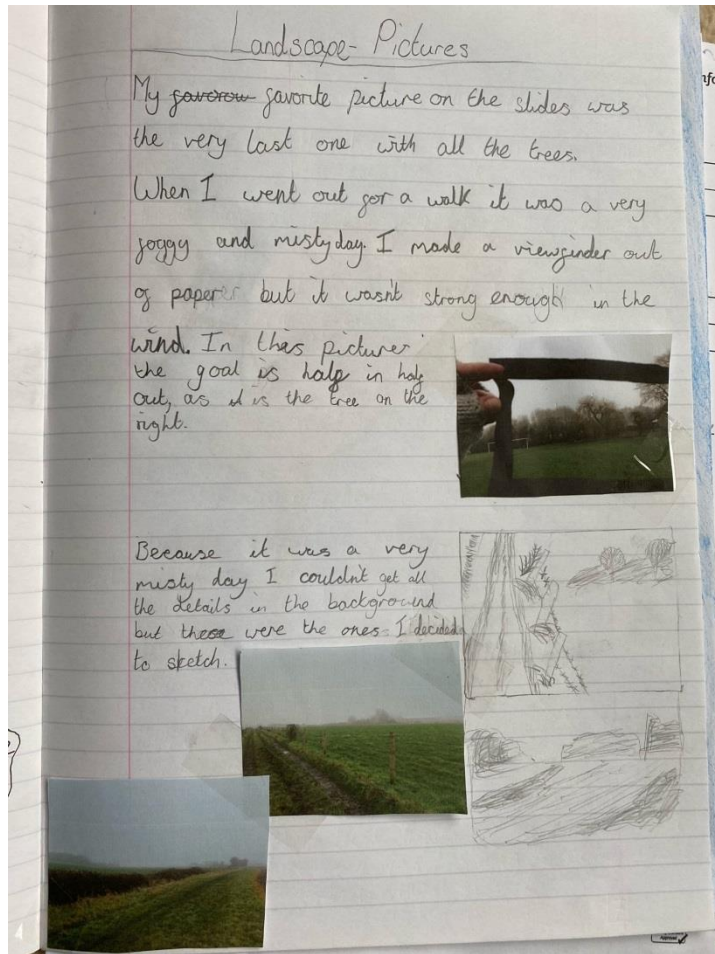 Landscape - Pictures
My favorow favorite picture on the slides was
the very last one with all the trees.
When I went out for a walk it was a very
foggy and misty day. I made a viewfinder out
of paper but it wasn't strong enough in the
wind. In this picture
the goal is half in half
out, as it is the tree on the
right.
Because it was a very
misty day I couldn't get all
the details in the background
but these were the ones I decided
to sketch.
4